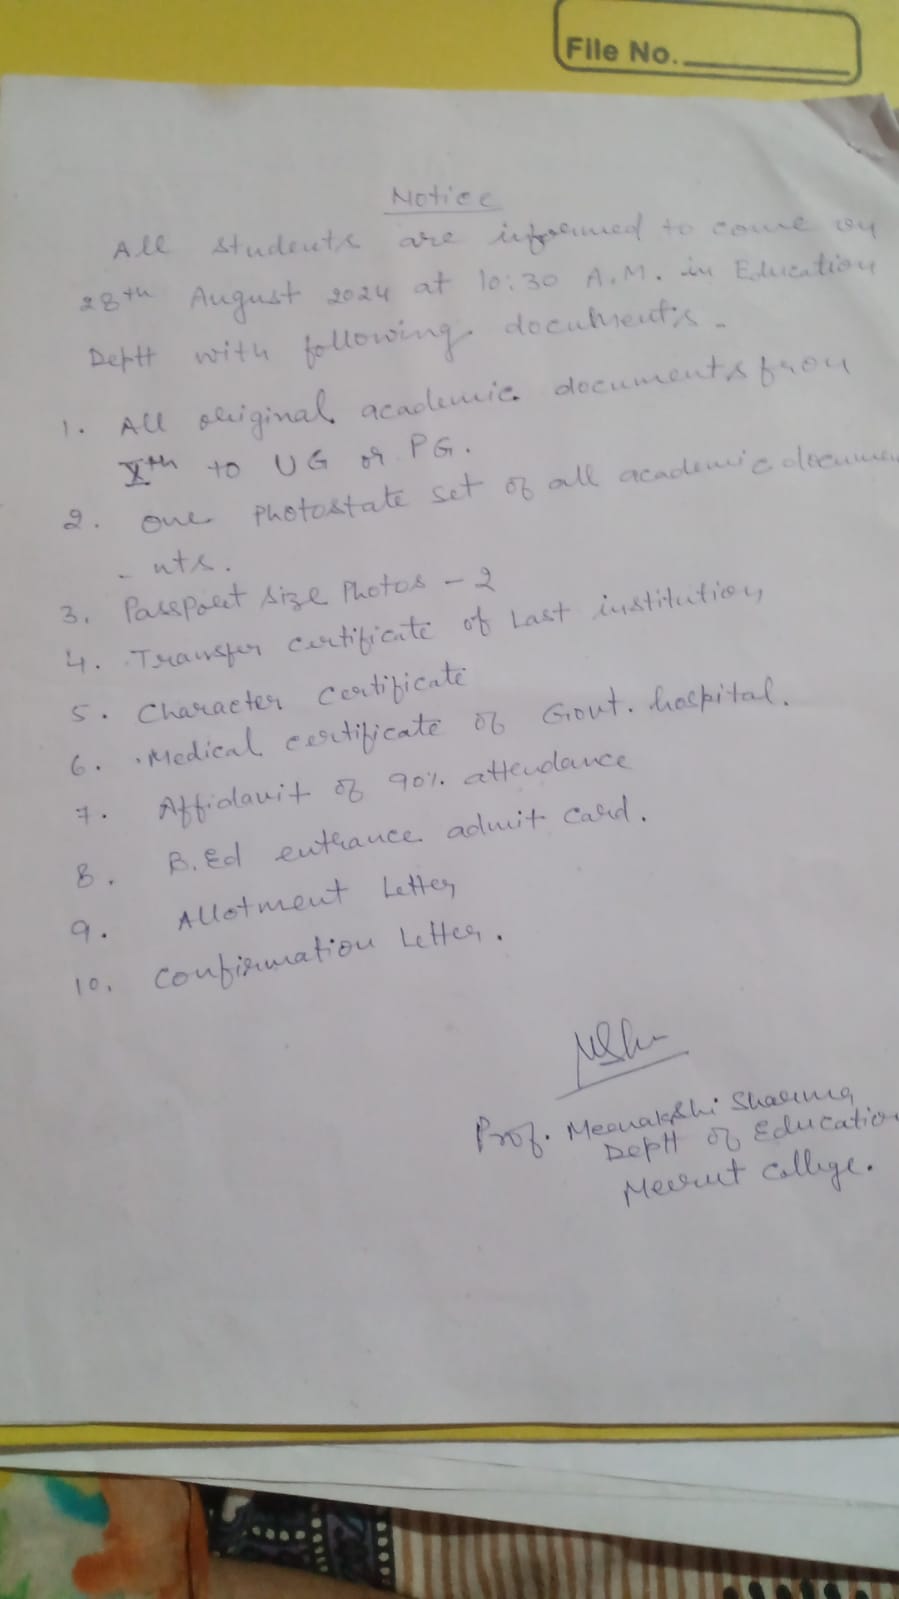 File No.
Notice
All students are informed to come on
28th August 2024 at 10:30 A.M. in Education
Deptt with following documents.
1. All original academic documents from
Xth to UG or PG.
2. one Photostate set of all academic docume
- nts.
3. Passport size Photos - 2
4. Transfer certificate of Last institution
5. Character certificate
6. Medical certificate of Govt. hospital.
7. Affidavit of 90% attendance
8. B.Ed entrance admit card.
9. Allotment Letter
10. Confirmation Letter.
Prof. Meenakshi Sharma
Deptt of Education
Meerut College.